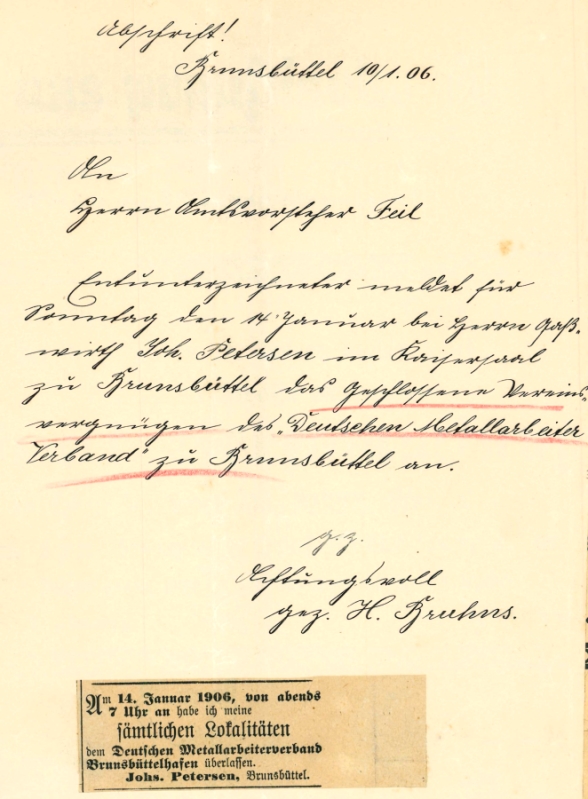 Abschrift!
Brunsbüttel 10/1. 06.
An
Herrn Amtsvorsteher Feil
Entunterzeichneter meldet für
Sonntag den 14 Januar bei Herrn Gaß-
wirth Joh. Petersen im Kaisersaal
zu Brunsbüttel das Geschlossene Vereins-
vergnügen des „Deutschen Metallarbeiter
Verband" zu Brunsbüttel an.
g. z.
Achtungsvoll
gez. H. Bruhns.
Am 14. Januar 1906, von abends
7 Uhr an habe ich meine
sämtlichen Lokalitäten
dem Deutschen Metallarbeiterverband
Brunsbüttelhafen überlassen.
Johs. Petersen, Brunsbüttel.